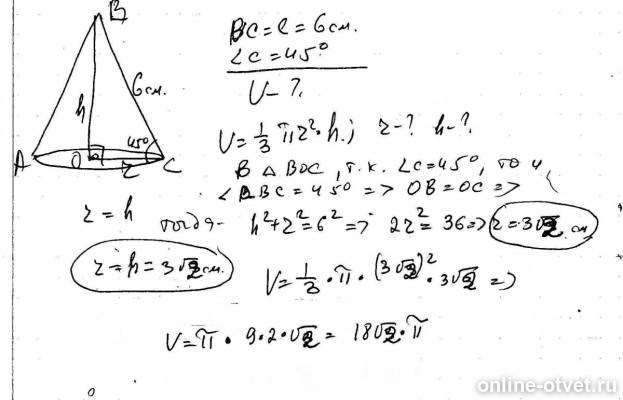 B
BC = l = 6 см.
∠C = 45°
V - ?
h
6 см.
45°
A
O
r
C
V = 1/3 π r² · h.; r - ? h - ?
В △ BOC, т.к. ∠C = 45°, то и
∠OBC = 45° => OB = OC =>
r = h
тогда - h² + r² = 6² => 2r² = 36 => r = 3√2 см
r = h = 3√2 см.
V = 1/3 · π · (3√2)² · 3√2 =>
V = π · 9 · 2 · √2 = 18√2 · π
online-otvet.ru